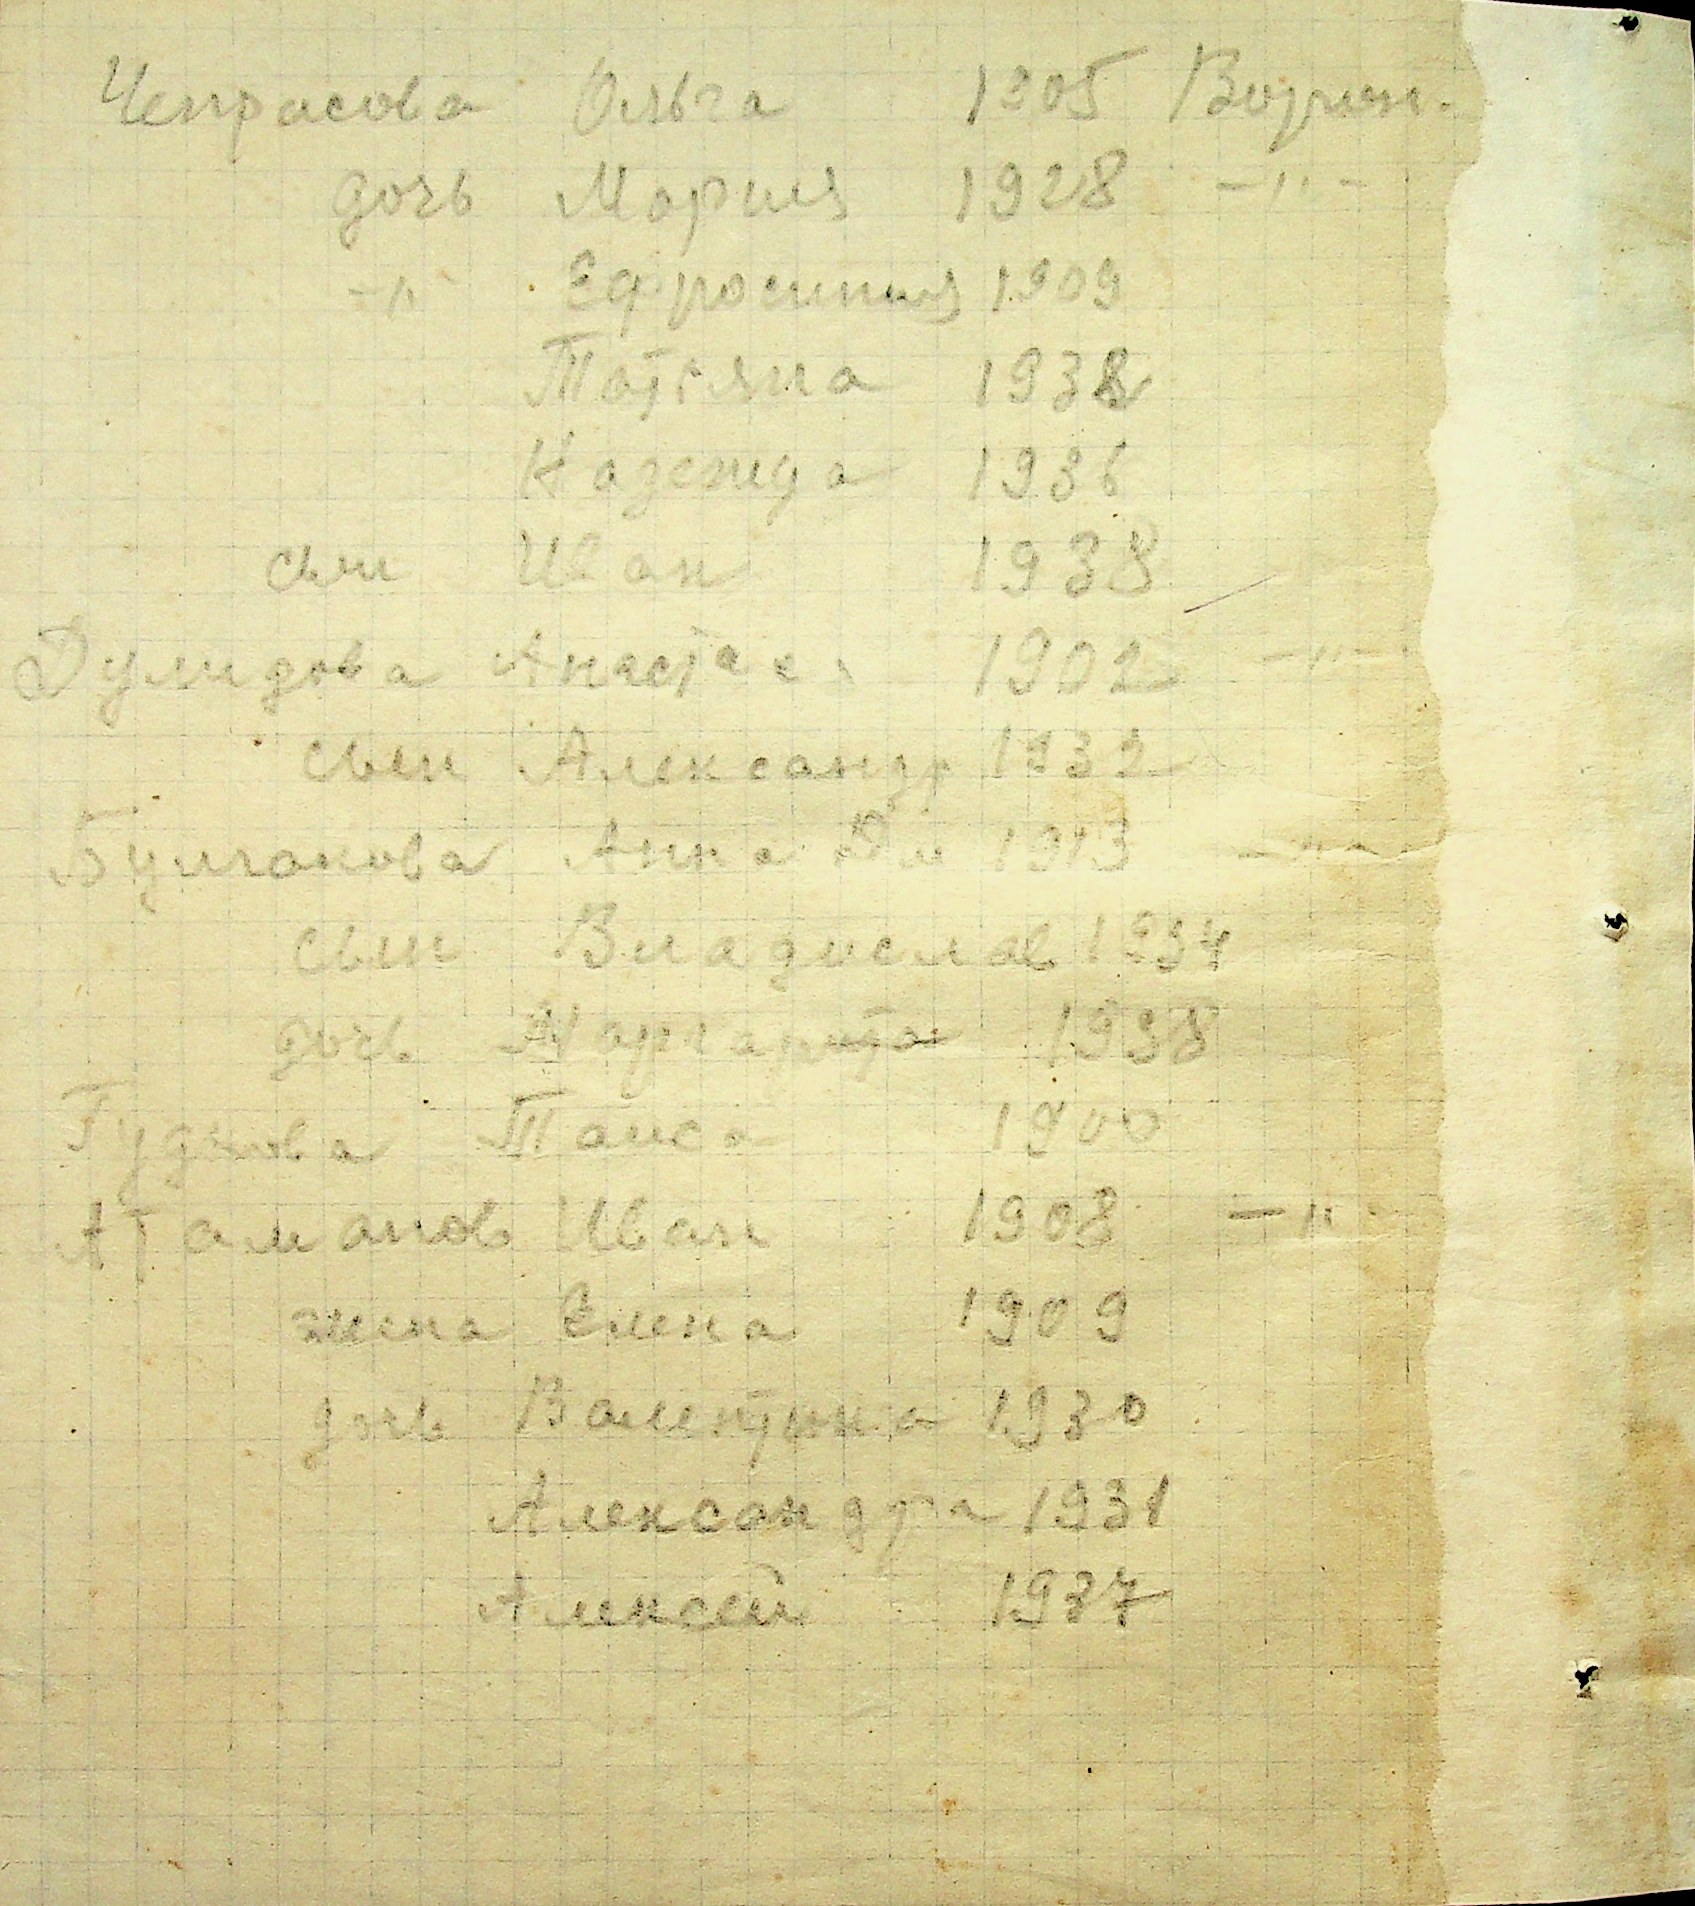 Чепрасова Ольга 1905 Ворон.
дочь Мария 1928 -"-
-"- Ефросиния 1909
Татьяна 1932
Надежда 1936
сын Иван 1938
Анастас 1902 -"-
сын Александр 1932
Булгакова Анна 1913 -"-
сын Владислав 1934
дочь Маргарита 1938
Гудкова Таиса 1900
Атаманов Иван 1908 -"-
жена Елена 1909
дочь Валентина 1930
Александра 1931
Алексей 1937